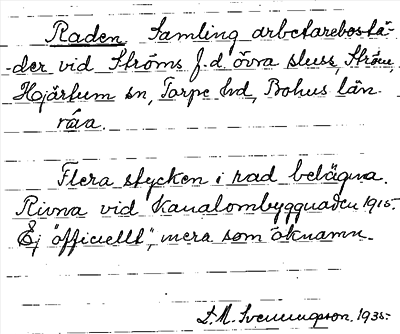 Raden, Samling arbetarebostä-
-der vid Ströms f.d. övra sluss, Ström,
Hjärtum sn, Torpe hd, Bohus län.
råa.
Flera stycken i rad belägna.
Rivna vid kanalombyggnaden 1915.
Ej "officiellt", mera som öknamn.
L.M. Svenungsson. 1935.